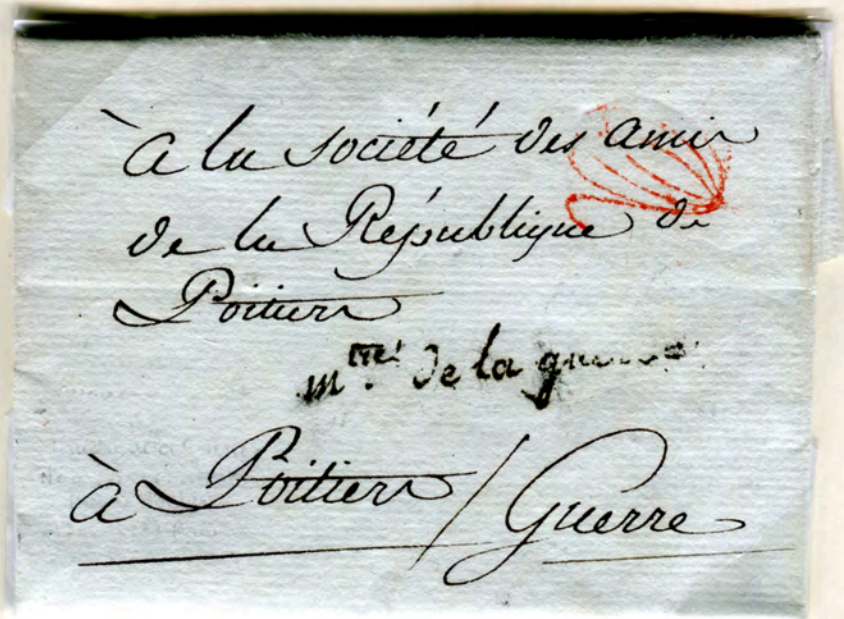 à la société des amis
de la République de
Poitiers
m.tre de la guerre
à Poitiers / Guerre